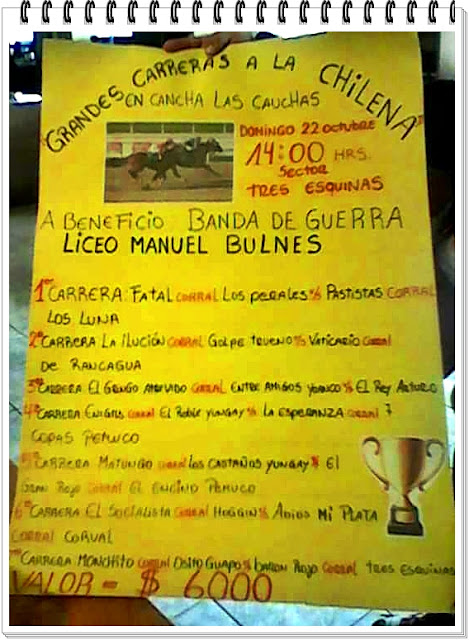 "GRANDES CARRERAS A LA CHILENA"
EN CANCHA LAS CAUCHAS
DOMINGO 22 octubre
14:00 HRS.
Sector
TRES ESQUINAS
A BENEFICIO BANDA DE GUERRA
LICEO MANUEL BULNES
1ª CARRERA FATAL CORRAL LOS PERALES % PASTISTAS CORRAL
LOS LUNA
2ª CARRERA LA ILUCIÓN CORRAL GOLPE TRUENO % VATICARIO CORRAL
DE RANCAGUA
3ª CARRERA EL GRINGO ATREVIDO CORRAL ENTRE AMIGOS YUNGAY % EL REY ARTURO
4ª CARRERA CORRAL EL ROBLE YUNGAY % LA ESPERANZA CORRAL 7
COPAS PEMUCO
5ª CARRERA MATUNGO CORRAL LOS CASTAÑOS YUNGAY % EL
GRAN ROJO CORRAL EL ENCINO PEMUCO
6ª CARRERA EL SOCIALISTA CORRAL HUGGIN % ADIOS MI PLATA
CORRAL CORVAL
CARRERA MONCHITO CORRAL OSITO GUAPO % BARON ROJO CORRAL TRES ESQUINAS
VALOR = $ 6000